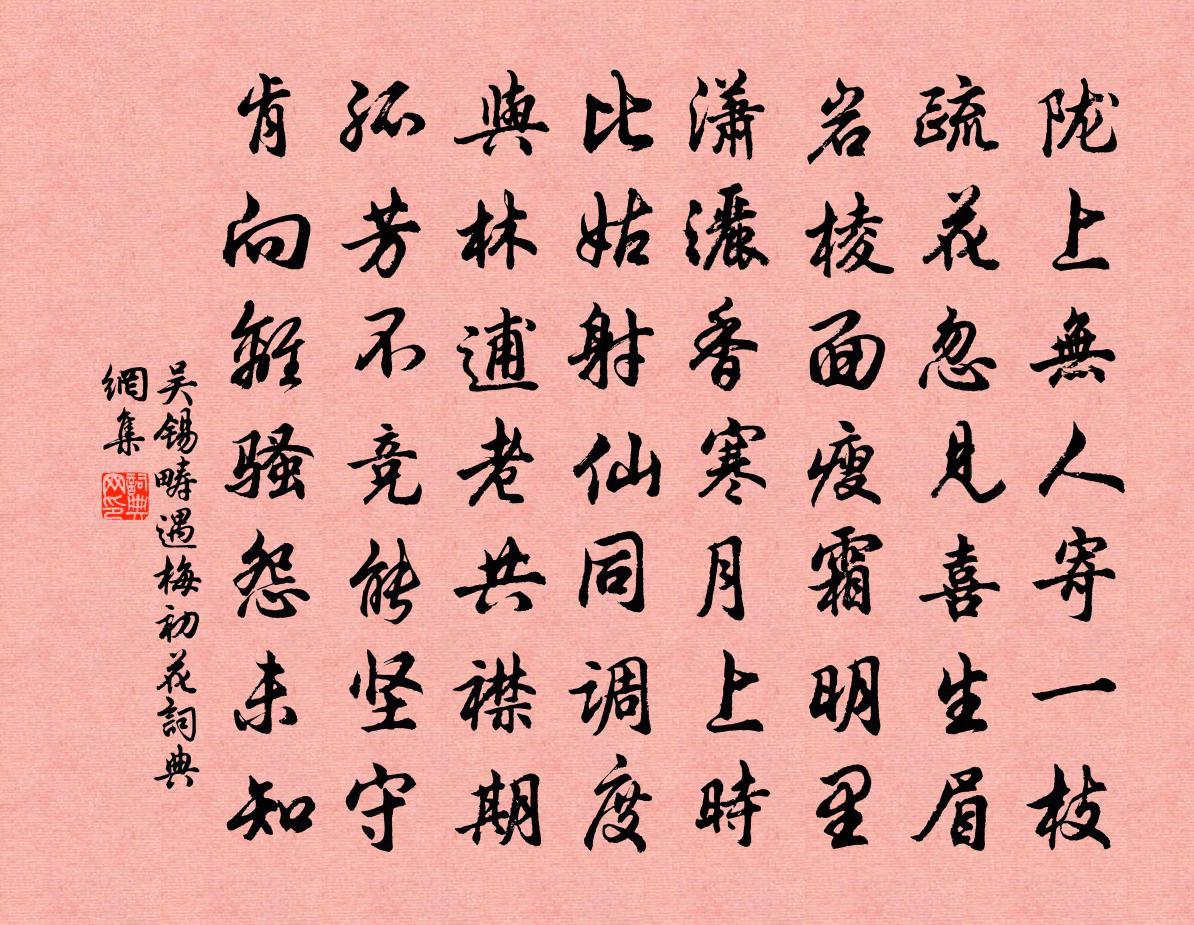 陇上無人寄一枝
疏花忽见喜生眉
岩棱面瘦霜明里
潇灑香寒月上時
比姑射仙同调度
與林逋老共襟期
孤芳不竞能坚守
肯向離骚怨未知
吴锡畴遇梅初花詞典
網集
詞典
网印